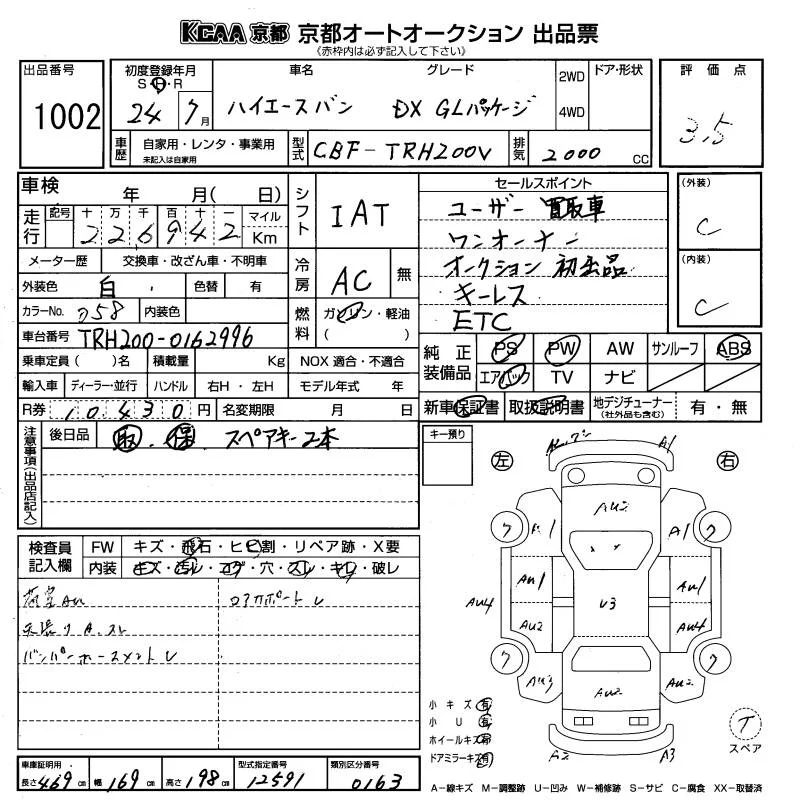 KCAA 京都 京都オートオークション 出品票
(赤枠内は必ず記入して下さい)
出品番号
1002
初度登録年月
S・H・R
24 7月
車名 グレード
ハイエースバン DX GLパッケージ
2WD
4WD
ドア・形状
評価点
3.5
車歴
自家用・レンタ・事業用
未記入は自家用
型式
CBF-TRH200V
排気
2000 CC
車検 年 月( 日)
走行
記号 十 万 千 百 十 一 マイル
2 2 6 9 4 2 Km
メーター歴 交換車・改ざん車・不明車
外装色 白 色替 有
カラーNo. 058 内装色
車台番号 TRH200-0162996
乗車定員( )名 積載量 Kg
輸入車 ディーラー・並行 ハンドル 右H・左H
R券 10,430 円 名変期限 月 日
シフト
IAT
冷房
AC 無
燃料
ガソリン・軽油
( )
NOX 適合・不適合
モデル年式 年
セールスポイント
ユーザー買取車
ワンオーナー
オークション初出品
キーレス
ETC
(外装)
C
(内装)
C
純正装備品
PS PW AW サンルーフ ABS
エアバック TV ナビ
新車保証書 取扱説明書 地デジチューナー (社外品も含む) 有・無
注意事項(出品店記入)
後日品 取・保 スペアキー2本
キー預り
左
右
検査員記入欄
FW キズ・飛石・ヒビ割・リペア跡・X要
内装 キズ・汚レ・コゲ・穴・スレ・キレ・破レ
荷室AU
天張りA.スレ
バンパーホースメントU
ロアサポートU
A1
AU2
A1
ワ
ワ
AU1
AU1
U3
AU4
AU2
AU4
ワ
ワ
AU3
AU2
AU2
A2
A3
小キズ 有
小U 有
ホイールキズ 有
ドアミラーキズ 有
T
スペア
車庫証明用
長さ 469 cm 幅 169 cm 高さ 198 cm
型式指定番号
12591
類別区分番号
0163
A−線キズ M−調整跡 U−凹み W−補修跡 S−サビ C−腐食 XX−取替済